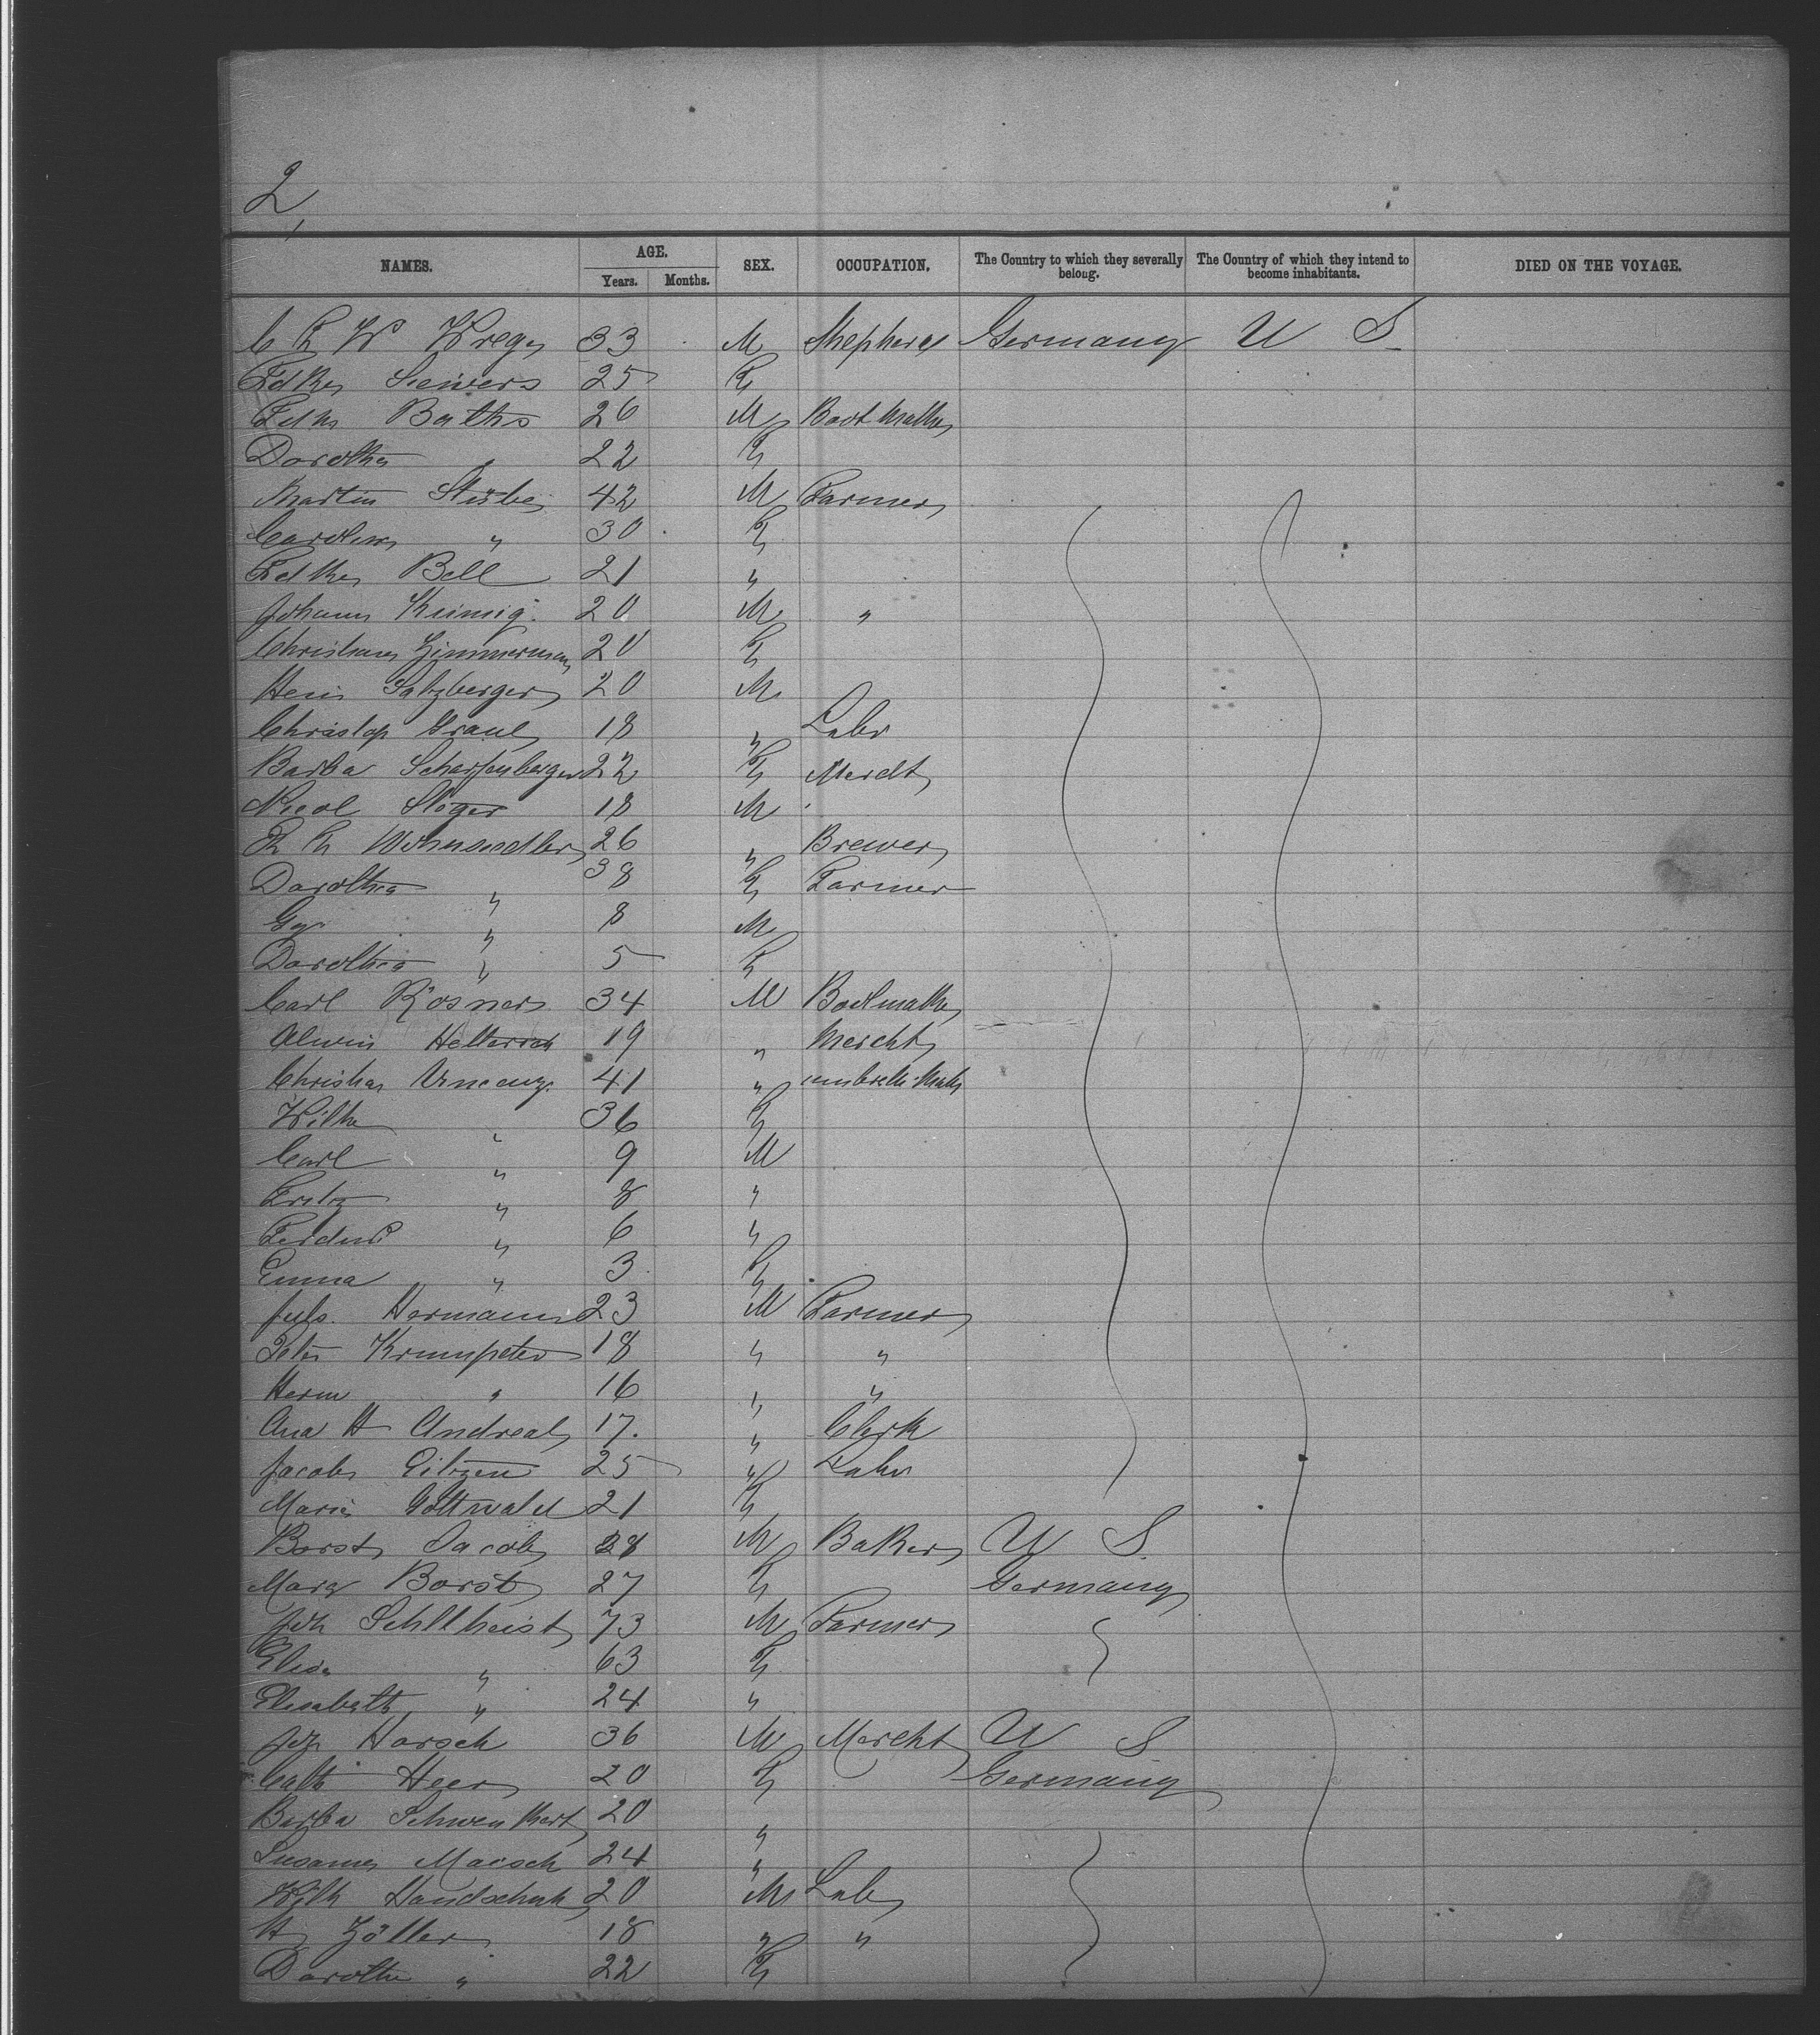 2,
NAMES. AGE. Years. Months. SEX. OCCUPATION. The Country to which they severally belong. The Country of which they intend to become inhabitants. DIED ON THE VOYAGE.
C F W 33 M Shepherd Germany U S
Siewers 25 F
Baths 26 M Bootmaker
Dorothea " 22 F
Martin 42 M Farmer
Carolina " 30 F
Bell 21 "
Johann 20 M "
Christiana Zimmerman 20 F
Salzberger 20 M
Christop Graul 18 " Labr
Barba Scharfenberger 22 F Merdt
Nicol Stöger 18 M
26 " Brewer
Dorothea " 38 F Farmer
Geo " 8 M
Dorothea " 5 F
Carl Rosner 34 M Bootmaker
Alwin Hellerich 19 " Mercht
Christian Vincenz 41 " umbrella Maker
Wilhe " 36 F
Carl " 9 M
Fritz " 8 "
Ferdind " 6 "
Emma " 3 F
Juls. Hermann 23 M Farmer
Peter Krumpeter 18 " "
Herm " 16 " "
Ana H Andreal 17. " Clerk
Jacob Eitzen 25 " Labr
Maria Gottwald 21 F
Borst Jacob 28 M Baker U S
Marg Borst 27 F Germany
Joh Schltheist 73 M Farmer
Elisa " 63 F
Elisabeth " 24 "
Joh Harsch 36 M Mercht U S
Cath Heer 20 F Germany
Barba Schwenkert 20 "
Susanna Maesch 24 "
Wilh Handschuh 20 M Lab
H Zöller 18 " "
Dorothe " 22 F